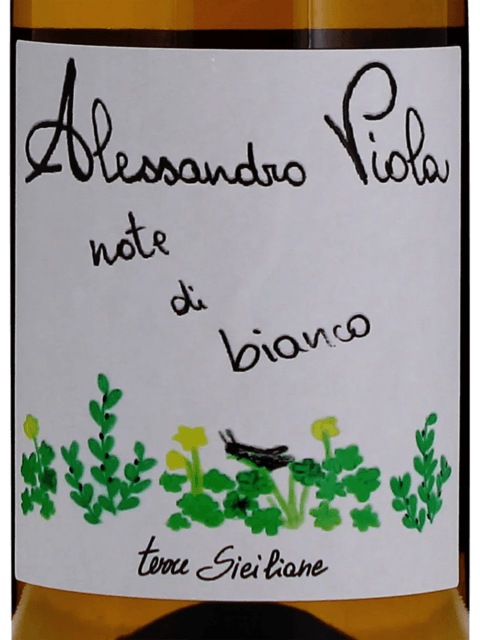 Alessandro Viola
note
di
bianco
terre Siciliane